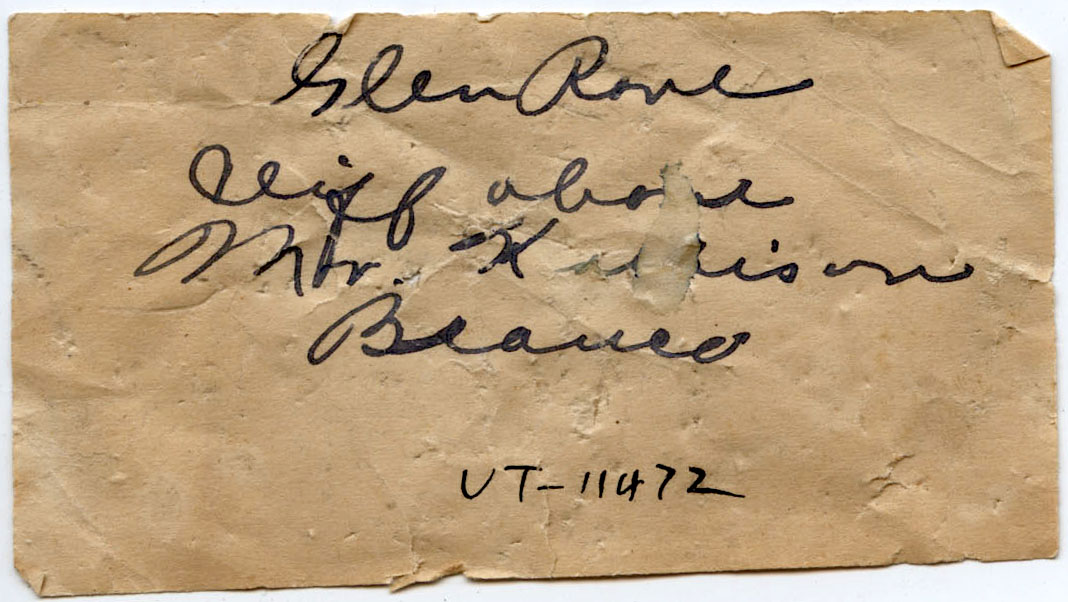 Glen Rose
Cliff above
Mtr.
Blanco
UT-11472